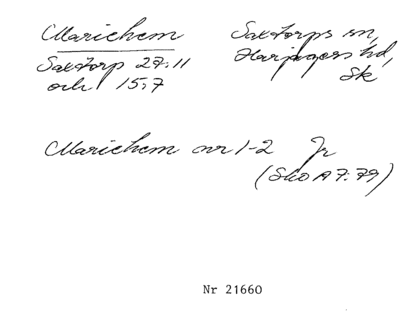 Marichem
Saxtorp 27:11
och 15:7
Saxtorps sn,
Harjagers hd,
Sk
Marichem nr 1-2 Jr
(SkO A7:79)
Nr 21660